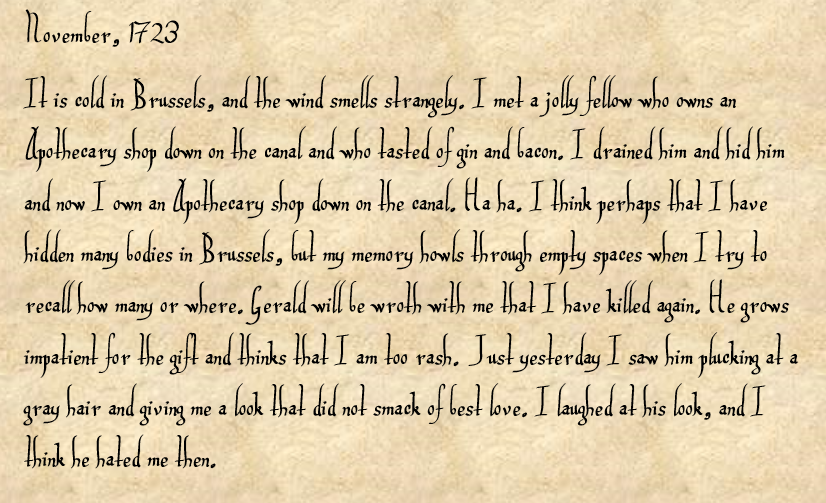 November, 1723
It is cold in Brussels, and the wind smells strangely. I met a jolly fellow who owns an
Apothecary shop down on the canal and who tasted of gin and bacon. I drained him and hid him
and now I own an Apothecary shop down on the canal. Ha ha. I think perhaps that I have
hidden many bodies in Brussels, but my memory howls through empty spaces when I try to
recall how many or where. Gerald will be wroth with me that I have killed again. He grows
impatient for the gift and thinks that I am too rash. Just yesterday I saw him plucking at a
gray hair and giving me a look that did not smack of best love. I laughed at his look, and I
think he hated me then.